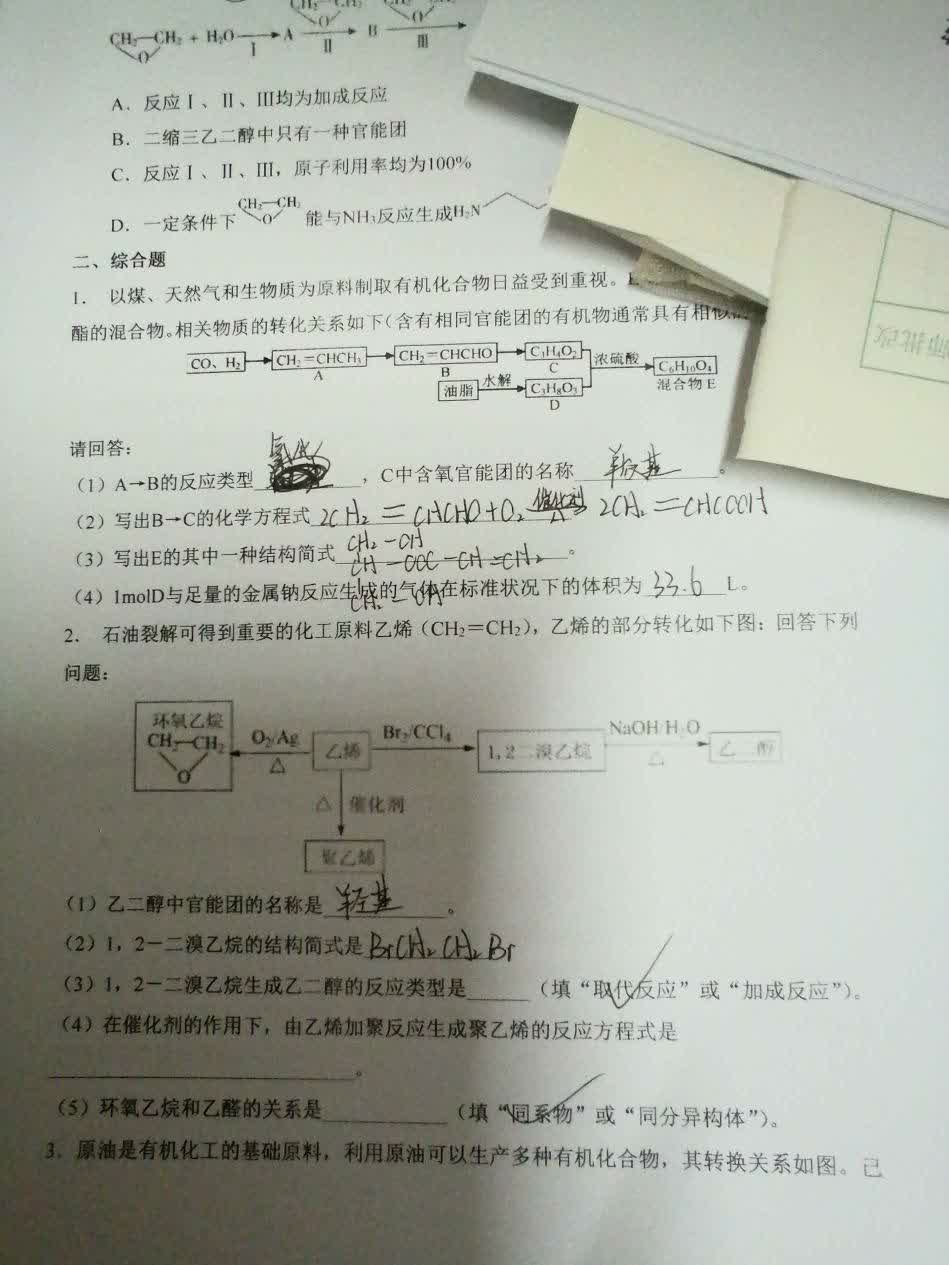 CH₂—CH₂ + H₂O → A → B →
O Ⅰ Ⅱ Ⅲ
A．反应Ⅰ、Ⅱ、Ⅲ均为加成反应
B．二缩三乙二醇中只有一种官能团
C．反应Ⅰ、Ⅱ、Ⅲ，原子利用率均为100%
CH₂—CH₂
D．一定条件下 O 能与NH₃反应生成H₂N
二、综合题
1． 以煤、天然气和生物质为原料制取有机化合物日益受到重视。
酯的混合物。相关物质的转化关系如下（含有相同官能团的有机物通常具有相似
CO、H₂ → CH₂＝CHCH₃ → CH₂＝CHCHO → C₃H₄O₂ 浓硫酸 C₆H₁₀O₄
A B C 混合物 E
油脂 水解 C₃H₈O₃
D
请回答：
氧化
（1）A→B的反应类型 ，C中含氧官能团的名称 羧基 。
（2）写出B→C的化学方程式 2CH₂＝CHCHO+O₂ 催化剂 △ 2CH₂＝CHCOOH
CH₂－OH
（3）写出E的其中一种结构简式 CH－OOC－CH＝CH₂ 。
CH₂－OH
（4）1molD与足量的金属钠反应生成的气体在标准状况下的体积为 33.6 L。
2． 石油裂解可得到重要的化工原料乙烯（CH₂＝CH₂），乙烯的部分转化如下图：回答下列
问题：
环氧乙烷
CH₂—CH₂ O₂/Ag 乙烯 Br₂/CCl₄ 1, 2 二溴乙烷 NaOH/H₂O 乙二醇
O △ △
△ 催化剂
聚乙烯
（1）乙二醇中官能团的名称是 羟基 。
（2）1，2－二溴乙烷的结构简式是 BrCH₂CH₂Br
（3）1，2－二溴乙烷生成乙二醇的反应类型是 （填“取代反应”或“加成反应”）。
（4）在催化剂的作用下，由乙烯加聚反应生成聚乙烯的反应方程式是
。
（5）环氧乙烷和乙醛的关系是 （填“同系物”或“同分异构体”）。
3．原油是有机化工的基础原料，利用原油可以生产多种有机化合物，其转换关系如图。已